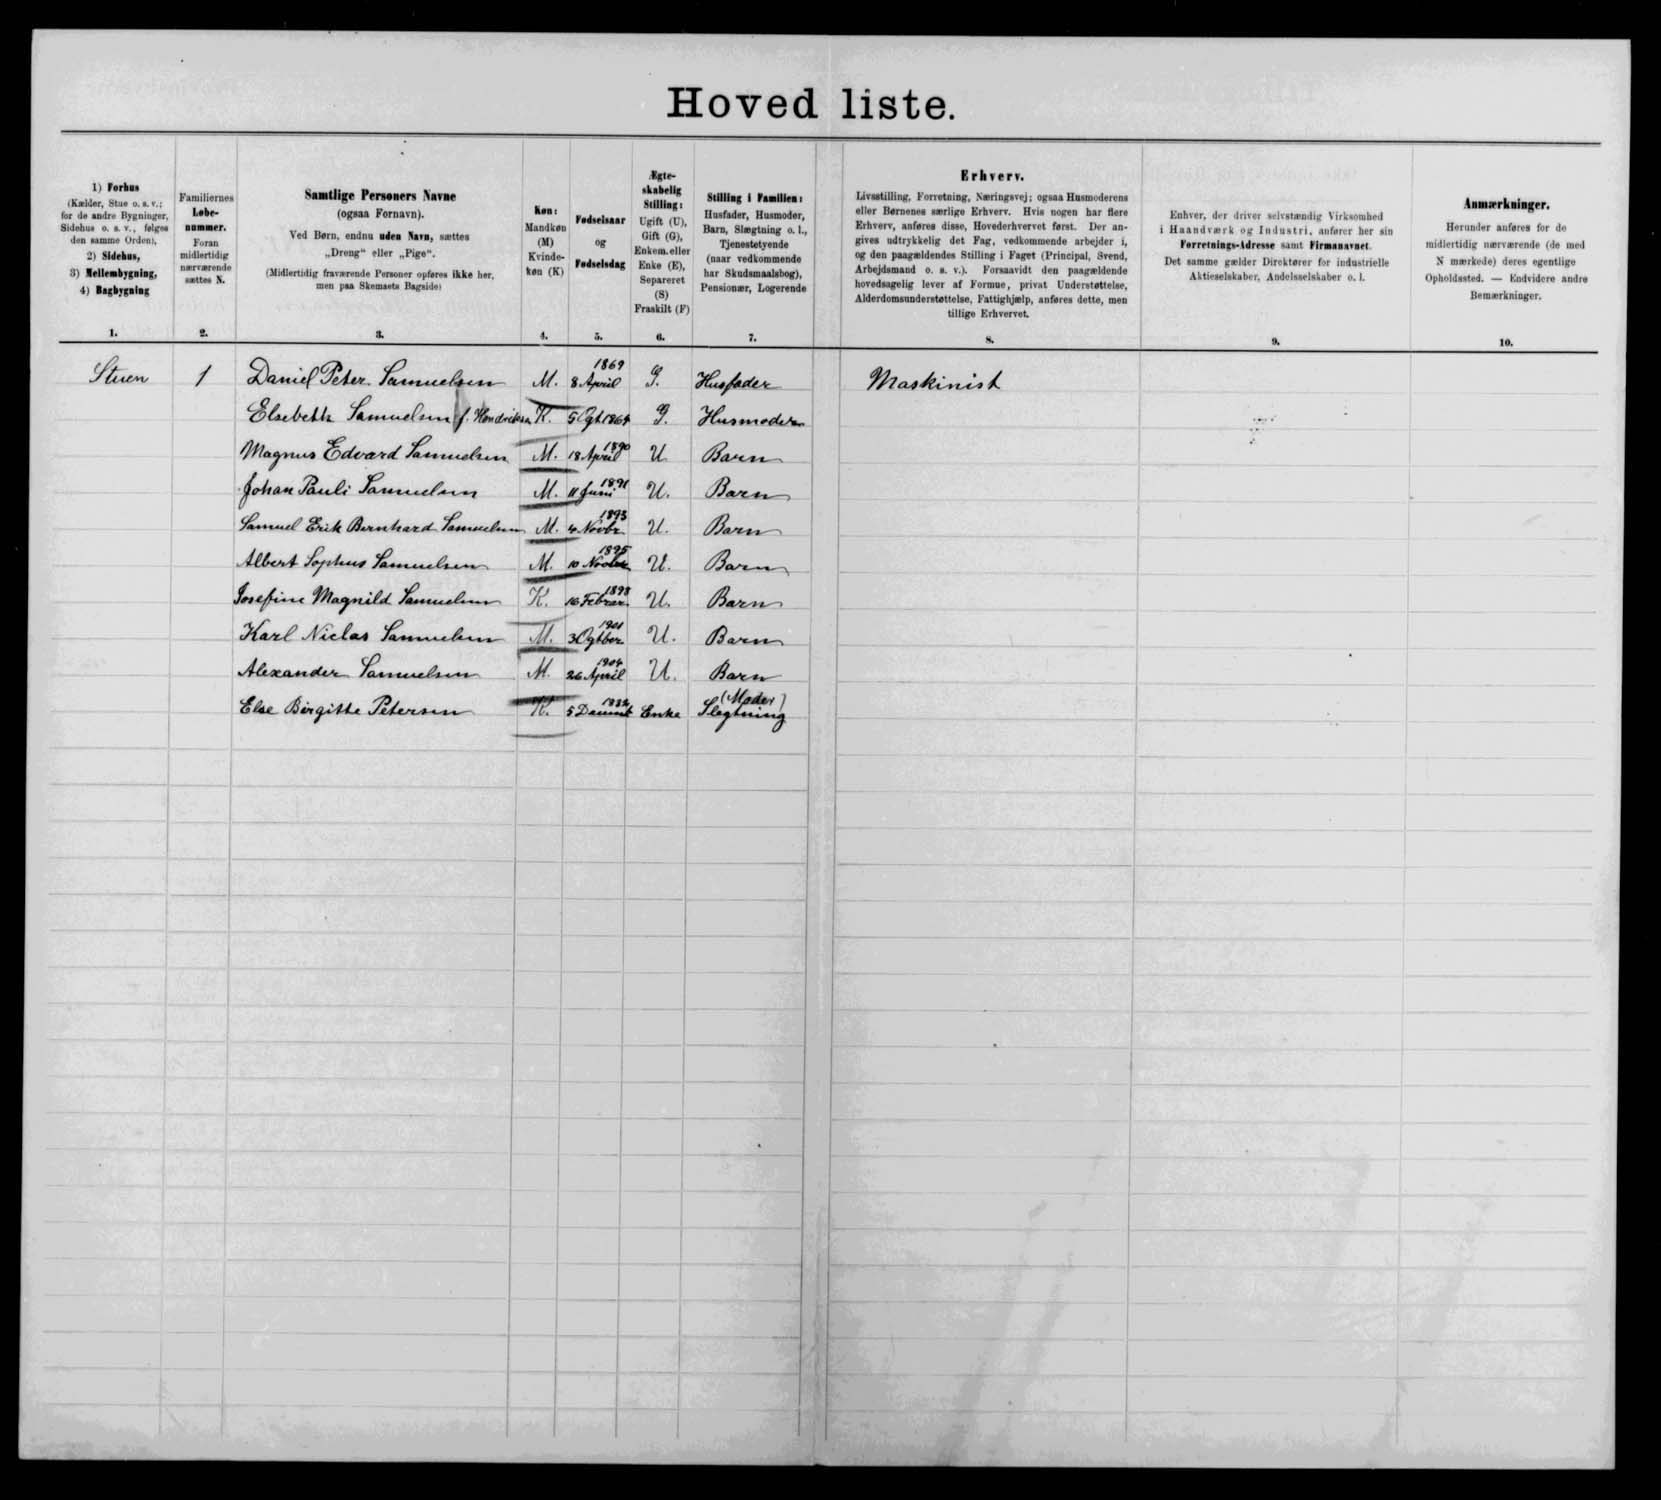 Hovedliste.
1) Forhus
(Kælder, Stue o. s. v.;
for de andre Bygninger,
Sidehus o. s. v., følges
den samme Orden),
2) Sidehus,
3) Mellembygning,
4) Bagbygning
1.
Familiernes
Løbe-
nummer.
Foran
midlertidig
nærværende
sættes N.
2.
Samtlige Personers Navne
(ogsaa Fornavn).
Ved Børn, endnu uden Navn, sættes
„Dreng“ eller „Pige“.
(Midlertidig fraværende Personer opføres ikke her,
men paa Skemaets Bagside)
3.
Køn:
Mandkøn
(M)
Kvinde-
køn (K)
4.
Fødselsaar
og
Fødselsdag
5.
Ægte-
skabelig
Stilling:
Ugift (U),
Gift (G),
Enkem. eller
Enke (E),
Separeret
(S)
Fraskilt (F)
6.
Stilling i Familien:
Husfader, Husmoder,
Barn, Slægtning o. l.,
Tjenestetyende
(naar vedkommende
har Skudsmaalsbog),
Pensionær, Logerende
7.
Erhverv.
Livsstilling, Forretning, Næringsvej; ogsaa Husmoderens
eller Børnenes særlige Erhverv. Hvis nogen har flere
Erhverv, anføres disse, Hovederhvervet først. Der an-
gives udtrykkelig det Fag, vedkommende arbejder i,
og den paagældendes Stilling i Faget (Principal, Svend,
Arbejdsmand o. s. v.). Forsaavidt den paagældende
hovedsagelig lever af Formue, privat Understøttelse,
Alderdomsunderstøttelse, Fattighjælp, anføres dette, men
tillige Erhvervet.
8.
Enhver, der driver selvstændig Virksomhed
i Haandværk og Industri, anfører her sin
Forretnings-Adresse samt Firmanavnet.
Det samme gælder Direktører for industrielle
Aktieselskaber, Andelsselskaber o. l.
9.
Anmærkninger.
Herunder anføres for de
midlertidig nærværende (de med
N mærkede) deres egentlige
Opholdssted. — Endvidere andre
Bemærkninger.
10.
Stuen 1 Daniel Peter Samuelsen M. 1869 8 April G. Husfader Maskinist
Elsebeth Samuelsen f. Hendriksen K. 5 Ogt 1864 G. Husmoder
Magnus Edvard Samuelsen M. 18 April 1890 U Barn
Johan Pauli Samuelsen M. 11 Juni 1891 U. Barn
Samuel Erik Bernhard Samuelsen M. 4 Novbr. 1893 U. Barn
Albert Sophus Samuelsen M. 10 Novber 1895 U. Barn
Josefine Magnild Samuelsen K. 16 Februar 1898 U. Barn
Karl Niclas Samuelsen M. 3 Ogtber 1901 U. Barn
Alexander Samuelsen M. 26 April 1904 U. Barn
Else Birgitte Petersen K. 5 1832 Enke (Moder) Slegtning